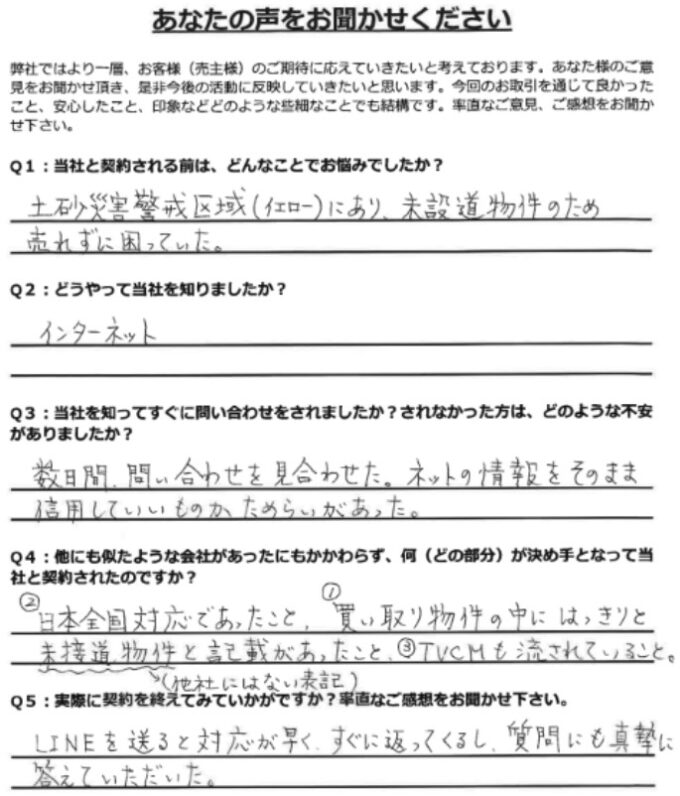 あなたの声をお聞かせください
弊社ではより一層、お客様（売主様）のご期待に応えていきたいと考えております。あなた様のご意
見をお聞かせ頂き、是非今後の活動に反映していきたいと思います。今回のお取引を通じて良かった
こと、安心したこと、印象などどのような些細なことでも結構です。率直なご意見、ご感想をお聞か
せ下さい。
Q1：当社と契約される前は、どんなことでお悩みでしたか？
土砂災害警戒区域(イエロー)にあり、未設道物件のため
売れずに困っていた。
Q2：どうやって当社を知りましたか？
インターネット
Q3：当社を知ってすぐに問い合わせをされましたか？されなかった方は、どのような不安
がありましたか？
数日間、問い合わせを見合わせた。ネットの情報をそのまま
信用していいものか、ためらいがあった。
Q4：他にも似たような会社があったにもかかわらず、何（どの部分）が決め手となって当
社と契約されたのですか？
②日本全国対応であったこと、①買い取り物件の中にはっきりと
未接道物件と記載があったこと、③TVCMも流されていること。
(他社にはない表記)
Q5：実際に契約を終えてみていかがですか？率直なご感想をお聞かせ下さい。
LINEを送ると対応が早く、すぐに返ってくるし、質問にも真摯に
答えていただいた。